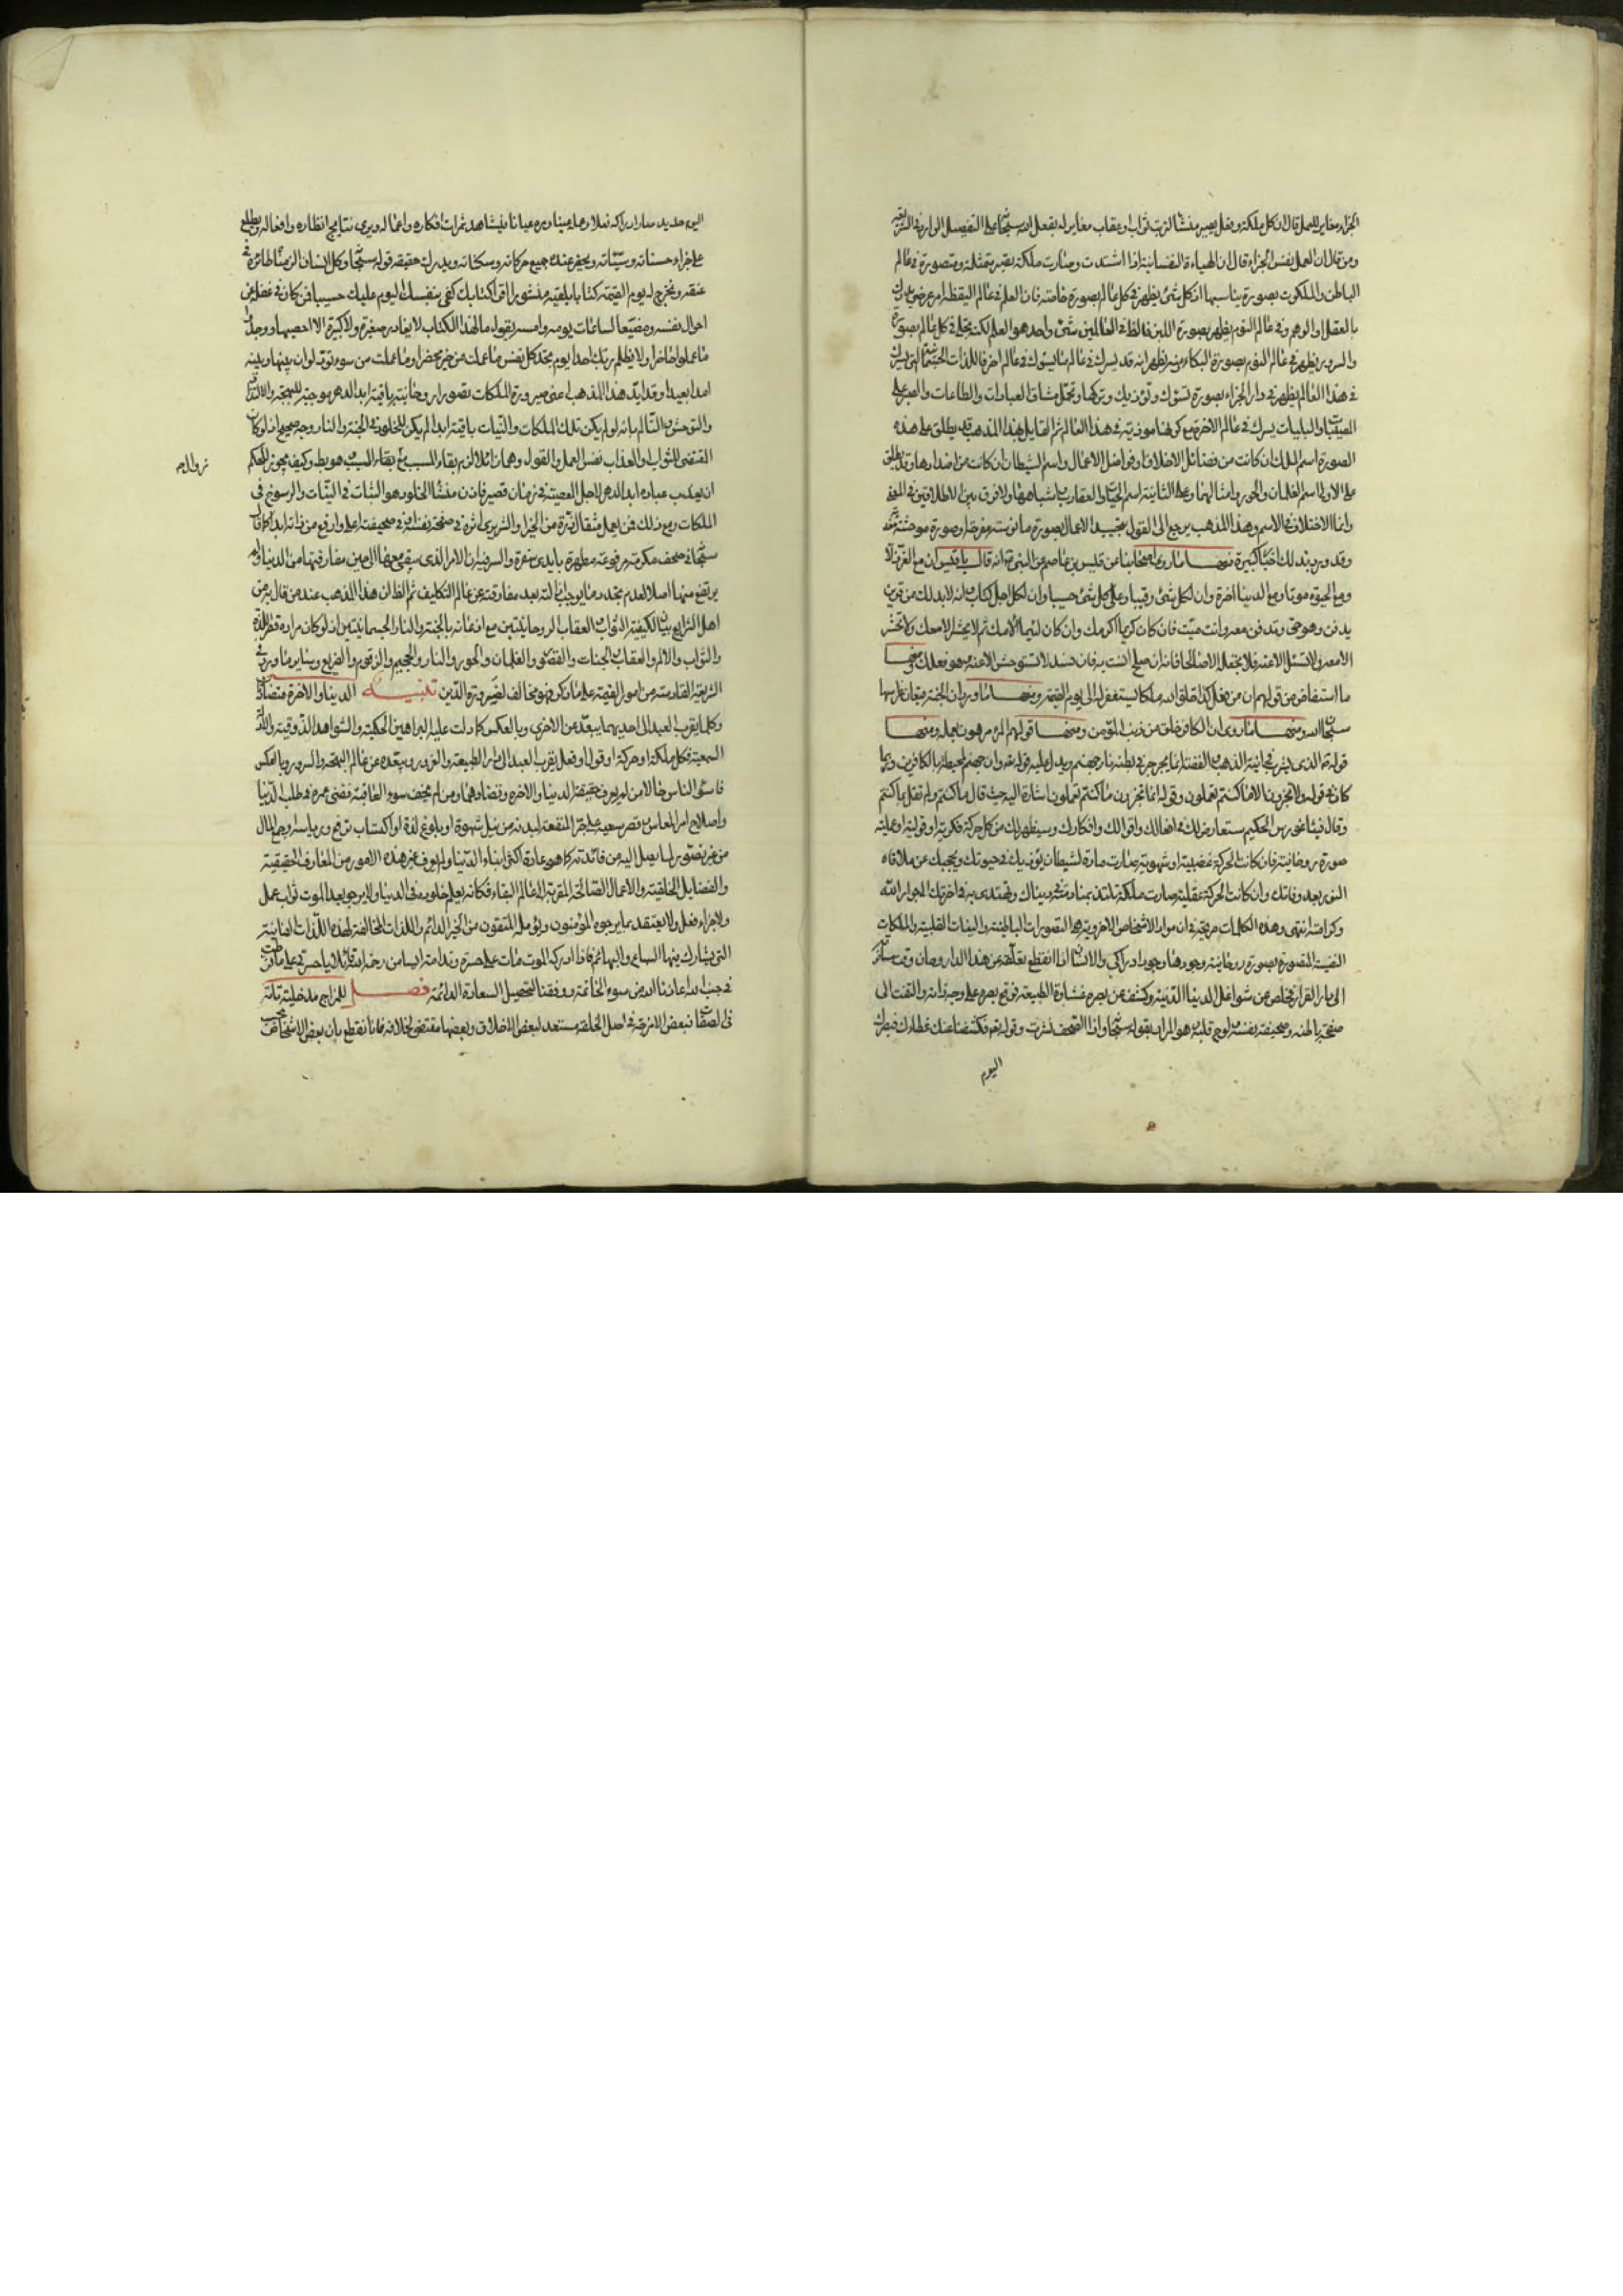 الجزاء مغاير للعمل قال ان كل ملكة وفعل يصير منشأ لترتب ثواب او عقاب مغاير له بفعل الله سبحانه على التفصيل الوارد في الشريعة
ومن قال ان العمل نفس الجزاء قال ان الهيأة النفسانية اذا اشتدت وصارت ملكة تصير متمثلة ومتصورة في عالم
الباطن والملكوت بصورة يناسبها اذ كل شئ يظهر في كل عالم بصورة خاصة فان العلم في عالم اليقظة امر عرضي يدرك
بالعقل او الوهم وفي عالم النوم يظهر بصورة اللبن فالظاهر في العالمين شئ واحد هو العلم لكنه تجلى في كل عالم بصورة
والسرور يظهر في عالم النوم بصورة البكاء ومنه يظهر انه قد يسرك في عالم ما يسوؤك في عالم اخر فاللذات الجسمانية التي تسرك
في هذا العالم يظهر في دار الجزاء بصورة تسوؤك وتؤذيك وتركها وتحمل مشاق العبادات والطاعات والصبر على
المصيبات والبليات يسرك في عالم الاخرة مع كونها موذية في هذا العالم ثم القايل بهذا المذهب قد يطلق على هذه
الصورة اسم الملك ان كانت من فضائل الاخلاق او فواضل الاعمال واسم الشيطان ان كانت من اضدادها وقد يطلق
على الاولى اسم الغلمان والحور وامثالهما وعلى الثانية اسم الحيات والعقارب واشباههما ولا فرق بين الاطلاقين في المعنى
وانما الاختلاف في الاسم وهذا المذهب يرجع الى القول بتجسد الاعمال بصورة مانوسة مفرحة او صورة موحشة معذبة
وقد ورد بذلك اخبار كثيرة منها ما روى اصحابنا عن قيس بن عاصم عن النبي ص انه قال يا قيس ان مع العز ذلا
ومع الحيوة موتا ومع الدنيا اخرة وان لكل شئ رقيبا وعلى كل شئ حسيبا وان لكل اجل كتاب انه لا بد لك من قرين
يدفن وهو حي وتدفن معه وانت ميت فان كان كريما اكرمك وان كان لئيما الامك ثم لا يحشر الا معك ولا تحشر
الا معه ولا تسئل الا عنه فلا تجعله الا صالحا فانه ان صلح انست به وان فسد لا تستوحش الا عنه وهو فعلك ومنها
ما استفاض من قولهم ان من فعل كذا خلق الله ملكا يستغفر له الى يوم القيمة ومنها ما ورد ان الجنة قيعان غراسها
سبحان الله ومنها ما روي ان الكافر خلق من ذنب المؤمن ومنها قولهم المرء مرهون بعمله ومنها
قوله الذي يشرب في انية الذهب والفضة انما يجرجر في بطنه نار جهنم ويدل عليه قوله تعه وان جهنم لمحيطة بالكافرين وربما
كان في قوله ولا تجزون الا ما كنتم تعملون وقوله انما تجزون ما كنتم تعملون اشارة اليه حيث قال ما كنتم ولم يقل بما كنتم
وقال فيثاغورس الحكيم ستعارض لك في افعالك واقوالك وافكارك وسيظهر لك من كل حركة فكرية او قولية او عملية
صورة روحانية فان كانت الحركة غضبية او شهوية صارت مادة لشيطان يؤذيك في حيوتك ويحجبك عن ملاقاة
النور بعد وفاتك وان كانت الحركة عقلية صارت ملكا تلتذ بمنادمته في دنياك وتهتدى به في اخرتك الى جوار الله
وكرامته انتهى وهذه الكلمات صريحة في ان مواد الاشخاص الاخروية هي التصورات الباطنية والنيات القلبية والملكات
النفسية المتصورة بصورة روحانية وجودها وجود ادراكي والانسان اذا انقطع تعلقه عن هذه الدار وحان وقت مسافرته
الى دار القرار وخلص عن شواغل الدنيا الدنية وكشف عن بصره غشاوة الطبيعة فوقع بصره على وجه ذاته والتفت الى
صفحة باطنه وصحيفة نفسه ولوح قلبه هو المراد بقوله سبحانه واذا الصحف نشرت وقوله تعه فكشفنا عنك غطاءك فبصرك
اليوم
اليوم حديد صار ادراكه فعلا وعلمه عينا وسره عيانا فيشاهد ثمرات افكاره واعماله ويرى نتايج انظاره وافعاله ويطلع
على جزاء حسناته وسيئاته ويحضر عنده جميع حركاته وسكناته ويدرك حقيقة قوله سبحانه وكل انسان الزمناه طائره في
عنقه ونخرج له يوم القيمة كتابا يلقيه منشورا اقرأ كتابك كفى بنفسك اليوم عليك حسيبا فمن كان في غفلة عن
احوال نفسه ومضيعا لساعات يومه وامسه يقول ما لهذا الكتاب لا يغادر صغيرة ولا كبيرة الا احصيها ووجدوا
ما عملوا حاضرا ولا يظلم ربك احدا يوم تجد كل نفس ما عملت من خير محضرا وما عملت من سوء تود لو ان بينها وبينه
امدا بعيدا وقد ايد هذا المذهب اعني صيرورة الملكات بصورة روحانية باقية ابد الدهر موجبة للبهجة والالتذاذ
والتوحش والتالم بانه لو لم يكن تلك الملكات والنيات باقية ابدا لم يكن للخلود في الجنة والنار وجه صحيح اذ لو كان
المقتضي للثواب او العذاب نفس العمل والقول وهما زائلان لزم بقاء المسبب مع زوال السبب وهو بط وكيف يجوز للحكيم
زوال م
ان يعذب عباده ابد الدهر لاجل المعصية في زمان قصير فاذن منشأ الخلود هو الثبات في النيات والرسوخ في
الملكات ومع ذلك فمن يعمل مثقال ذرة من الخير او الشر يرى اثره في صفحة نفسه او في صحيفة اعلى وارفع من ذاته ابدا كما قال
سبحانه في صحف مكرمة مرفوعة مطهرة بايدى سفرة والسر فيه ان الامر الذى يبقى معها الى حين مفارقتها من الدنيا ولم
يرتفع منها اصلا لعدم تجدد ما يوجب ازالته بعد مفارقته عن عالم التكليف ثم الظ ان هذا المذهب عند من قال به من
اهل الشرايع بيان لكيفية الثواب والعقاب الروحانيتين مع اذعانه بالجنة والنار الجسمانيتين اذ لو كان مراده قصر اللذة
والثواب والالم والعقاب والجنات والقصور والغلمان والحور والنار والجحيم والزقوم والضريع وساير ما ورد في
الشريعة القادسة من امور القيمة على ما ذكر فهو مخالف لضرورة الدين تنبيه الدنيا والاخرة متضادتان
وكلما يقرب العبد الى احديهما يبعده عن الاخرى وبالعكس كما دلت عليه البراهين الحكمية والشواهد الذوقية والادلة
السمعية فكل ملكة او حركة او قول او فعل يقرب العبد الى دار الطبيعة والغرور يبعده عن عالم البهجة والسرور وبالعكس
فاسوء الناس حالا من لم يعرف حقيقة الدنيا والاخرة وتضادهما ومن لم يخف سوء العاقبة فضى عمره في طلب الدنيا
واصلاح امر المعاش وقصر سعيه على جر المنفعة لبدنه من نيل شهوة او بلوغ لذة او اكتساب ترفع ورياسة او جمع المال
من غير تصور لما يصل اليه من فائدته كما هو عادة اكثر ابناء الدنيا ولم يعرف غير هذه الامور من المعارف الحقيقية
والفضايل الخلقية والاعمال الصالحة المقربة الى عالم البقاء فكانه يعلم خلوده في الدنيا ولا يرجو بعد الموت ثواب عمل
ولا جزاء فعل ولا يعتقد بما يرجوه المؤمنون ويؤمله المتقون من الخير الدائم واللذات المخالفة لهذه اللذات الفانية
التي يشارك فيها السباع والبهائم فاذا ادركه الموت مات على حسرة وندامة ايسا من رحمة الله قائلا يا حسرتى على ما فرطت
في جنب الله اعاذنا الله من سوء الخاتمة ووفقنا لتحصيل السعادة الدائمة فصل للمزاج مدخلية تامة
في الصفات فبعض الامزجة في اصل الخلقة مستعد لبعض الاخلاق وبعضها مقتض لخلافه فانا نقطع بان بعض الاشخاص بحسب